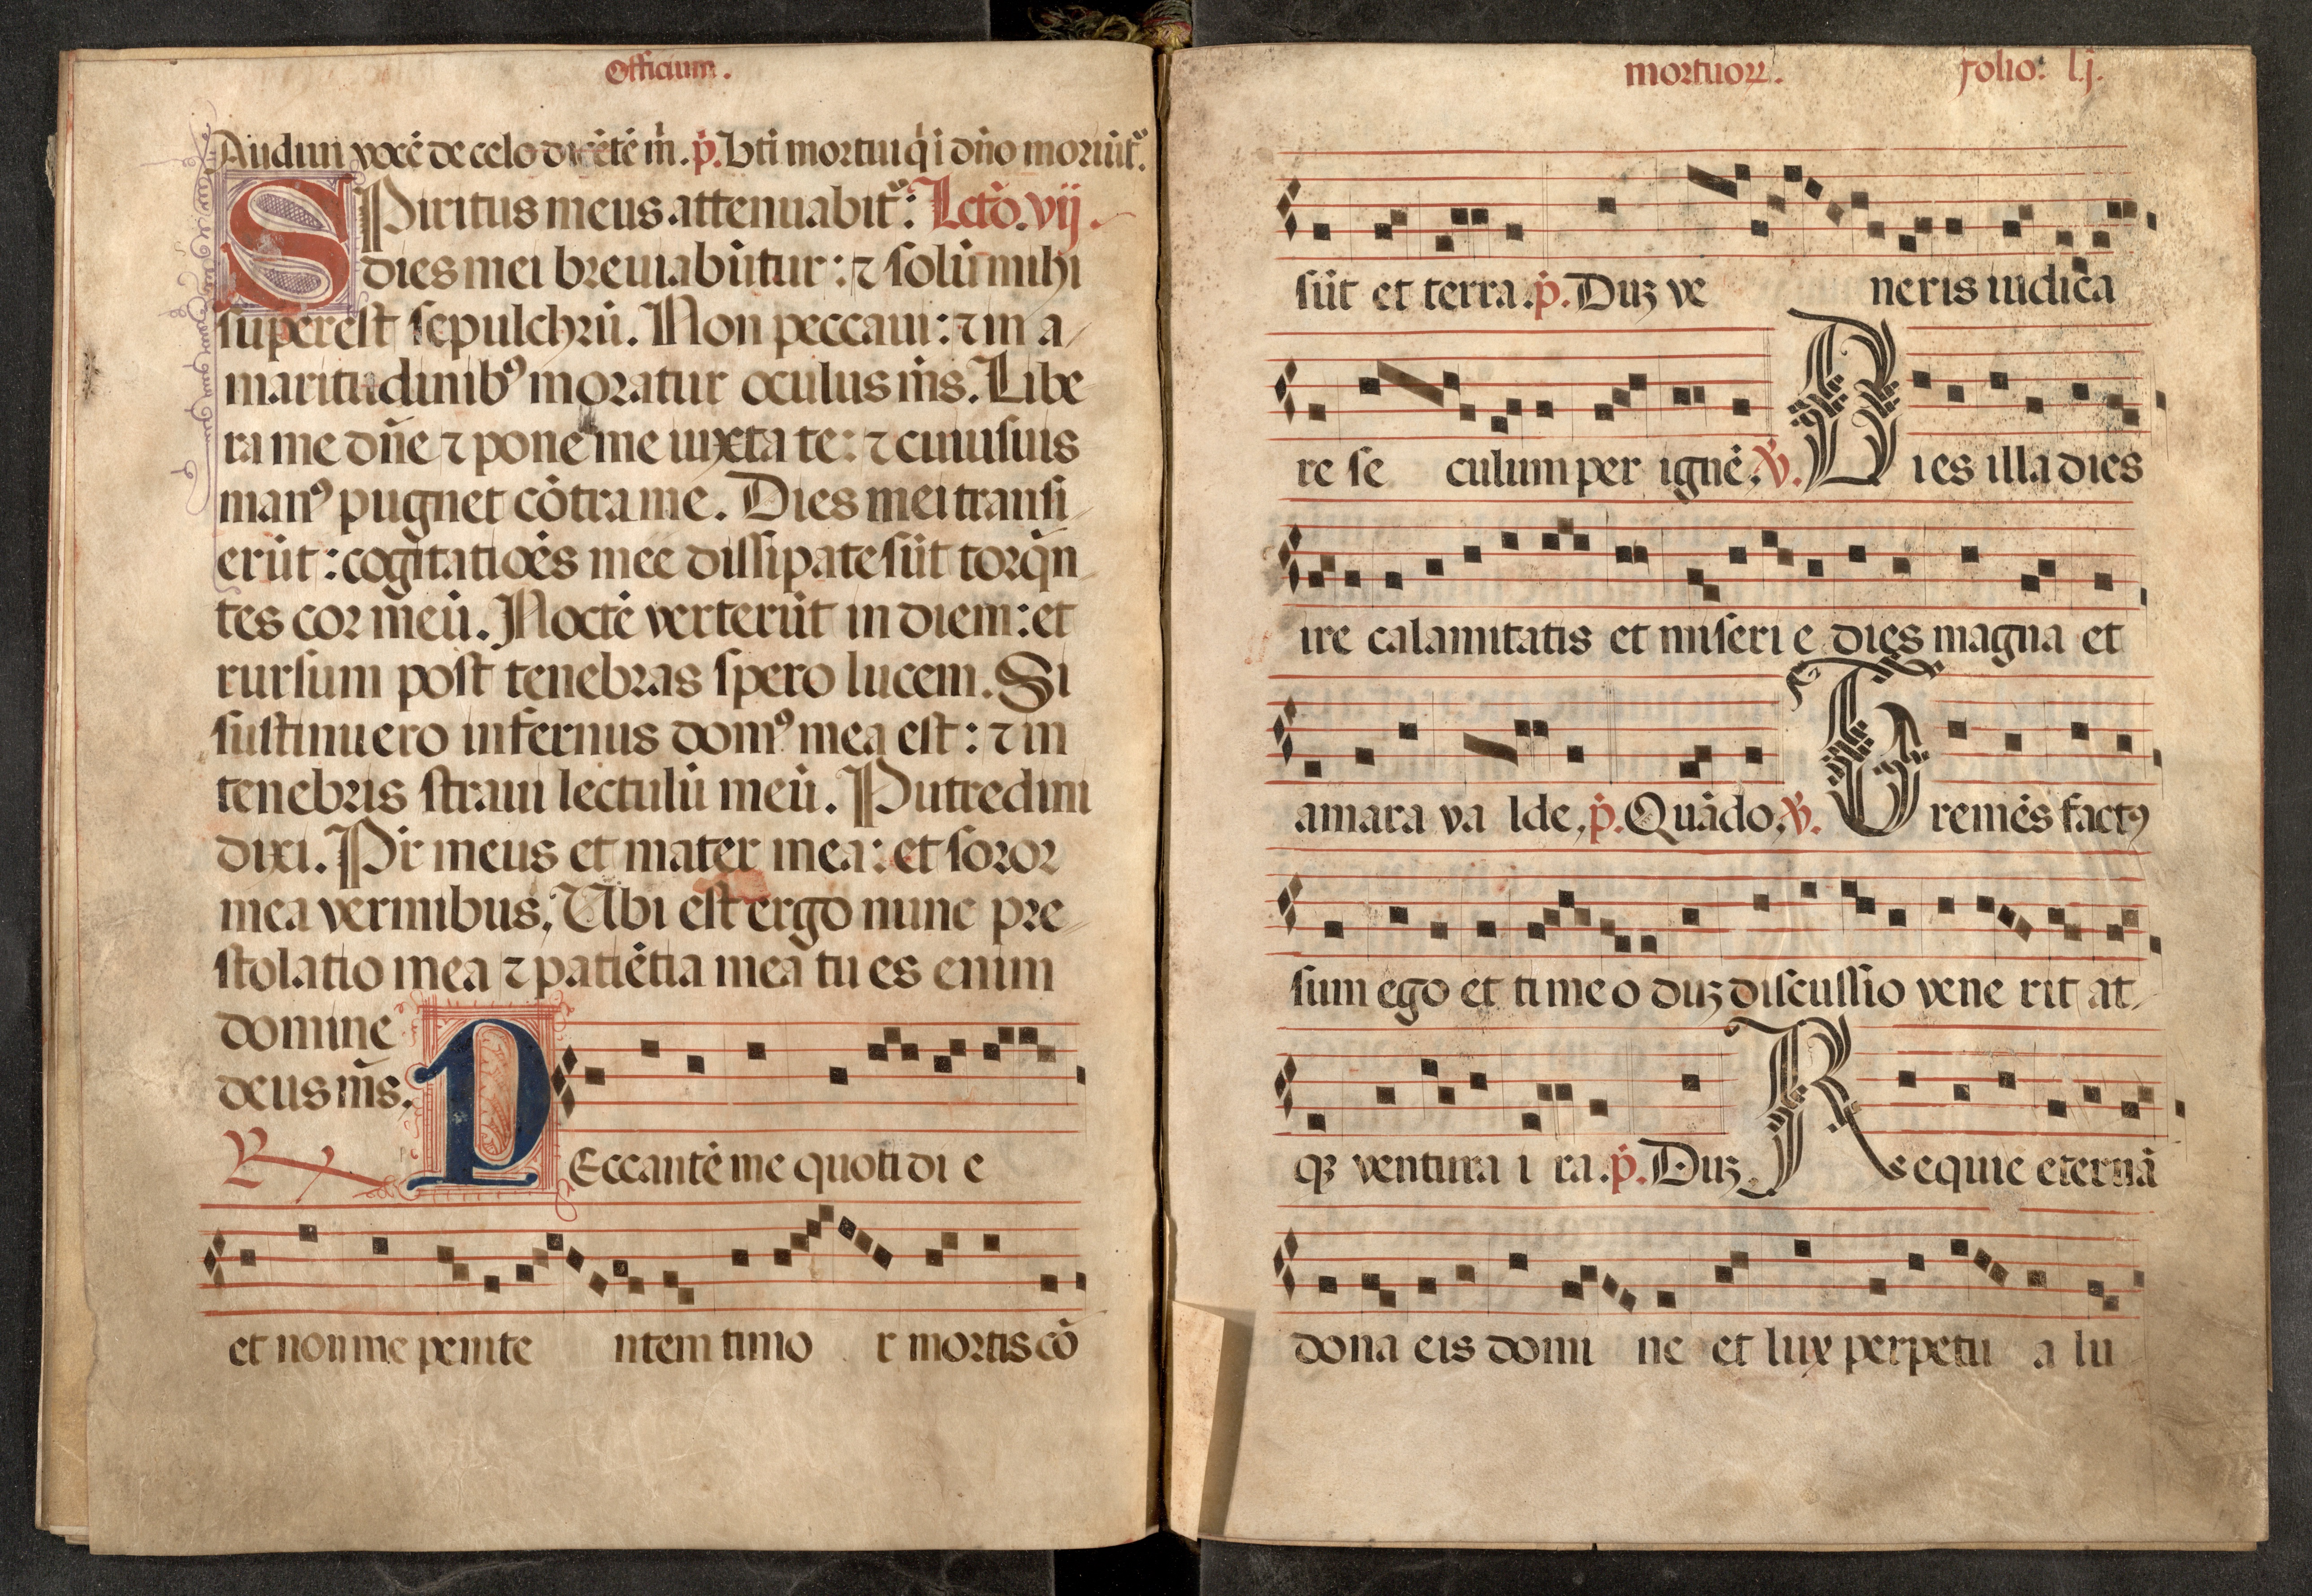 Officium.
Audiui vocē de celo dicētē m̄. p̄. Bt̄i mortui q̄ i dn̄o moriūt̄.
Spiritus meus attenuabit̄: Lctō. vij.
dies mei breuiabūtur: ⁊ solū mihi
superest sepulchrū. Non peccaui: ⁊ in a
maritudinibꝰ moratur oculus m̄s. Libe
ra me dn̄e ⁊ pone me iuxta te: ⁊ cuiusuis
manꝰ pugnet cōtra me. Dies mei transi
erūt: cogitatiōēs mee dissipate sūt torq̄n
tes cor meū. Noctē verterūt in diem: et
rursum post tenebras spero lucem. Si
sustinuero infernus domꝰ mea est: ⁊ in
tenebris straui lectulū meū. Putredini
dixi. Pr̄ meus et mater mea: et soror
mea vermibus. Ubi est ergo nunc pre
stolatio mea ⁊ patiētia mea tu es enim
domine
deus m̄s.
R PEccantē me quotidi e
et non me penite ntem timo r mortis cō
mortuoꝝ. folio: lj.
sūt et terra. p̄. Duꝫ ve neris iudica
re se culum per ignē. ℣. Dies illa dies
ire calamitatis et miseri e dies magna et
amara va lde. p̄. Quādo. ℣. Tremēs factꝰ
sum ego et timeo duꝫ discussio vene rit at
qꝫ ventura i ra. p̄. Duꝫ Requiē eternā
dona eis domi ne et lux perpetu a lu